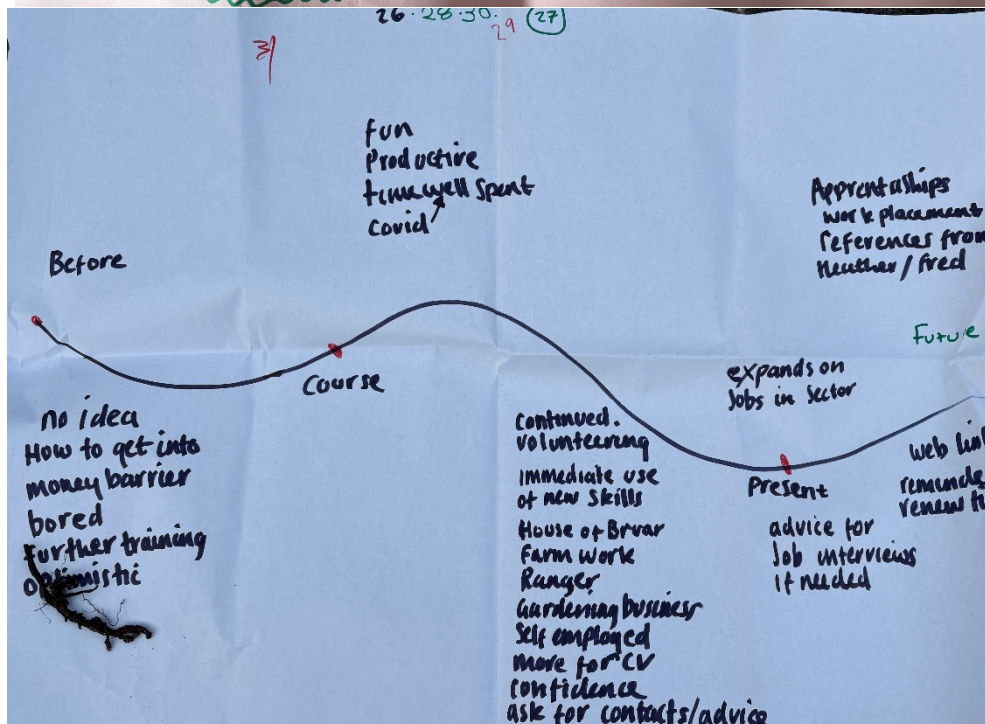 26 · 28 · 30 ·
29
27
31
Fun
Productive
time well spent
Covid
Apprentaships
work placement
references from
Heather / Fred
Before
Future
Course
expands on
Jobs in Sector
no idea
How to get into
money barrier
bored
further training
optimistic
continued.
volunteering
immediate use
of new skills
House of Bruar
Farm work
Ranger
Gardening business
Self employed
more for CV
confidence
ask for contacts/advice
Present
advice for
Job interviews
if needed
web lin
reminde
renew